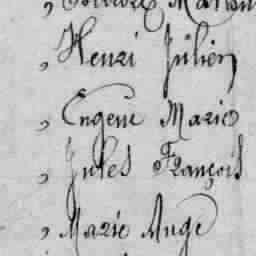 , Henri Julien
, Eugène Marie
, Jules François
, Marie Ange